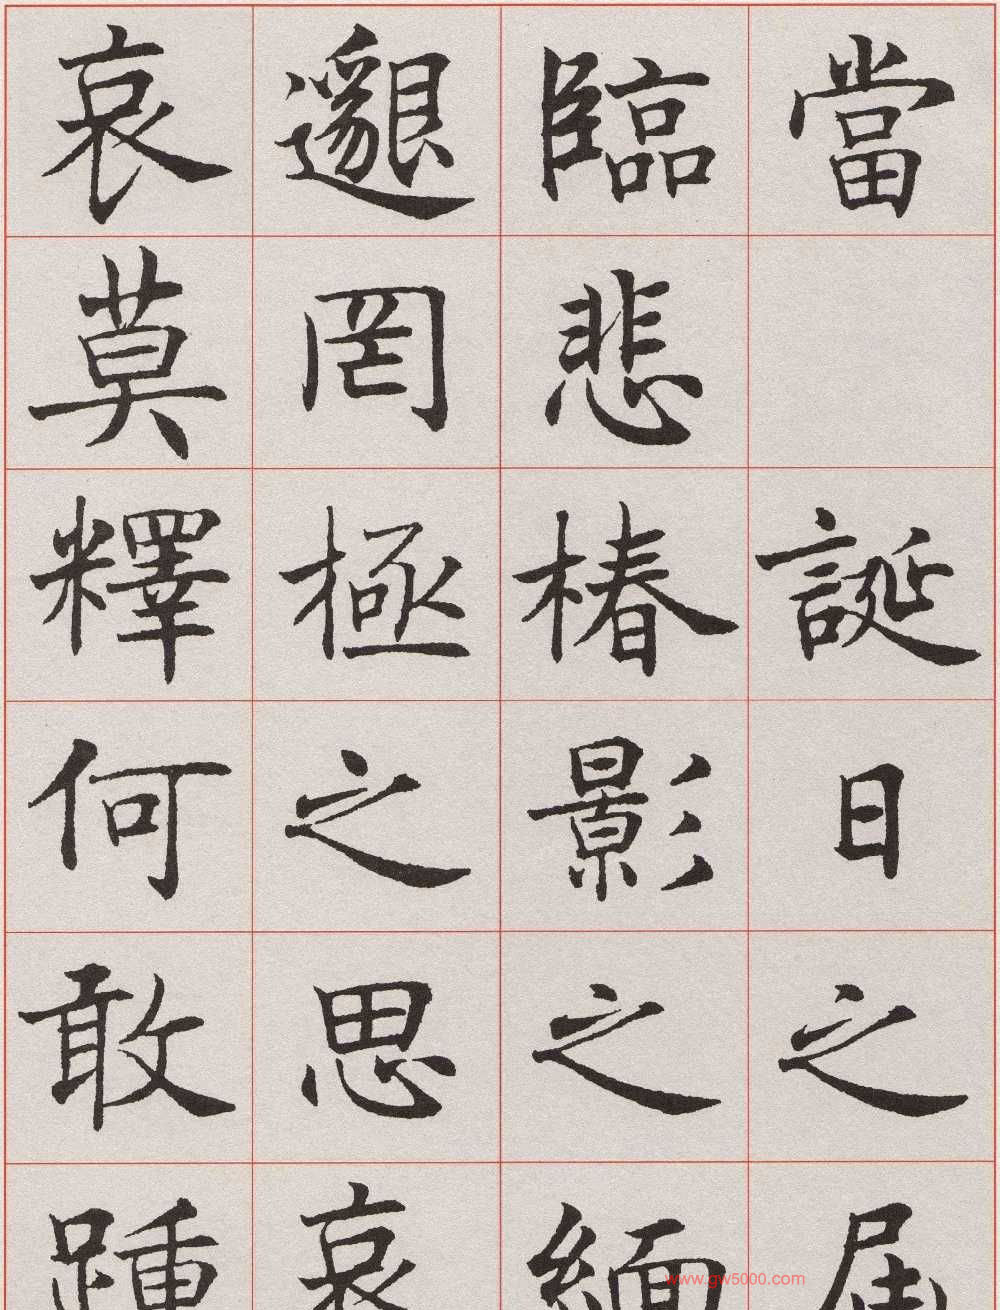 當誕日之届
臨悲椿影之緬
邈罔極之思哀
哀莫釋何敢踵
www.gw5000.com